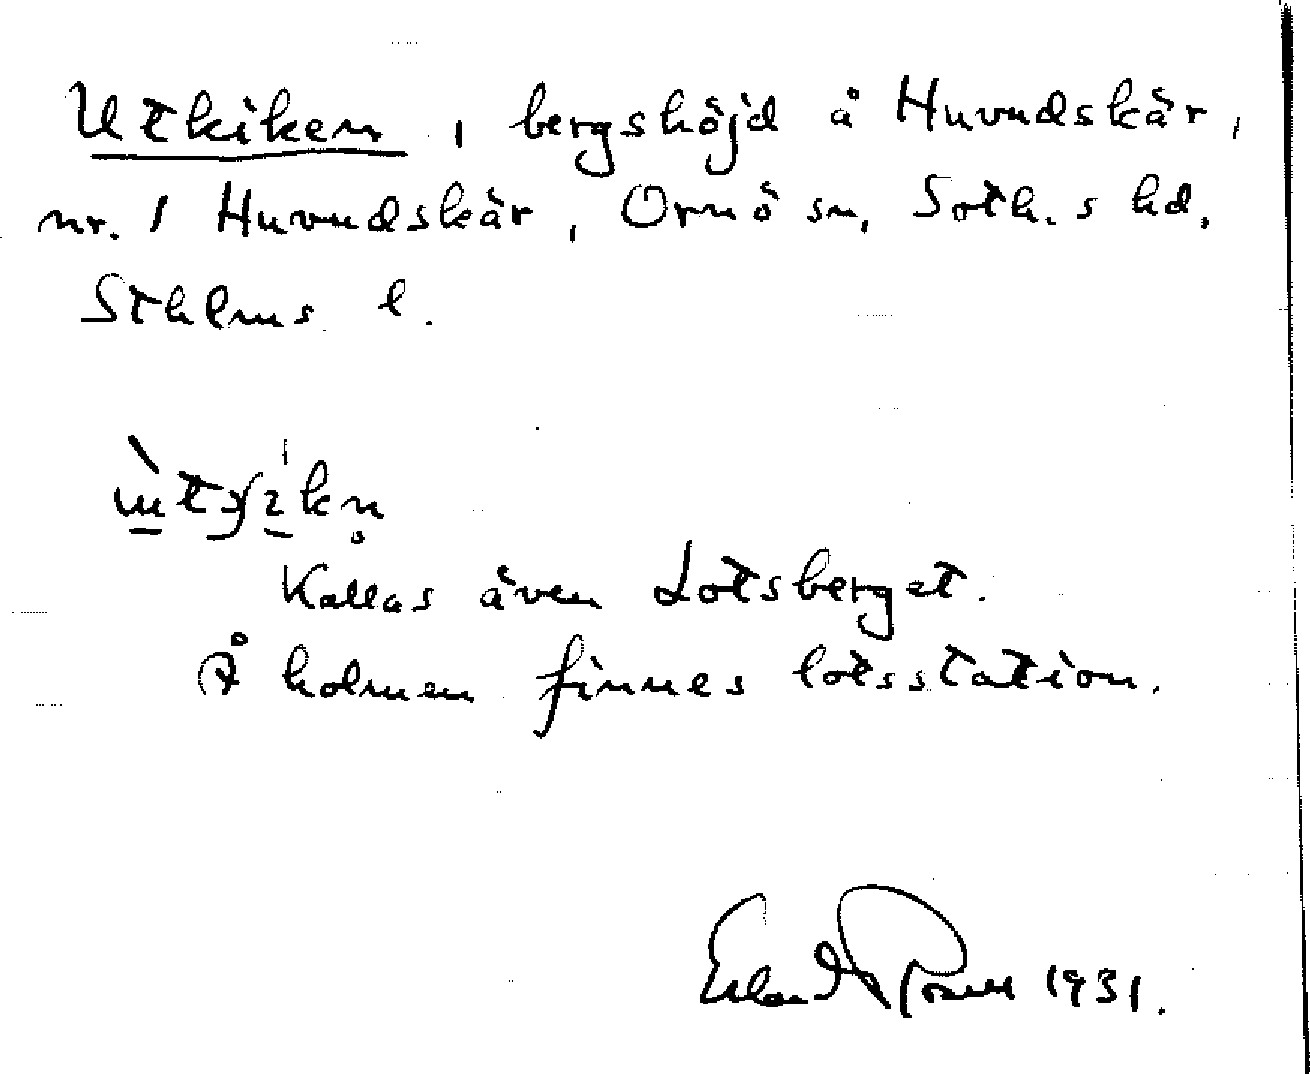 Utkiken, bergshöjd å Huvudskär,
nr. 1 Huvudskär, Ornö sn, Soth.s hd.
Sthlms l.
Kallas även Lotsberget.
Å holmen finnes lotsstation.
Erland Rosell 1931.